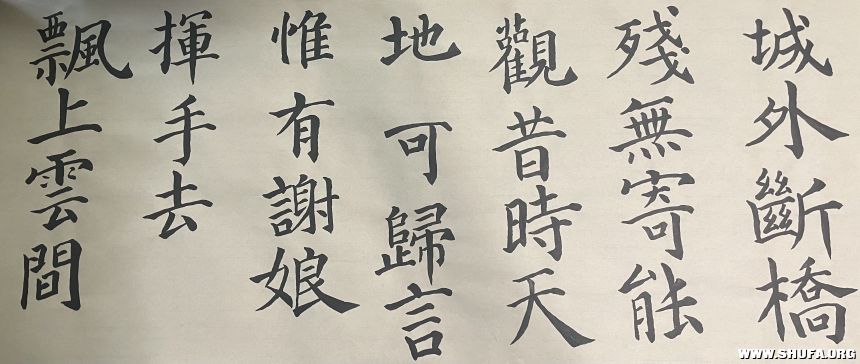 城外斷橋
殘無寄能
觀昔時天
地可歸言
惟有謝娘
揮手去
飄上雲間
WWW.SHUFA.ORG